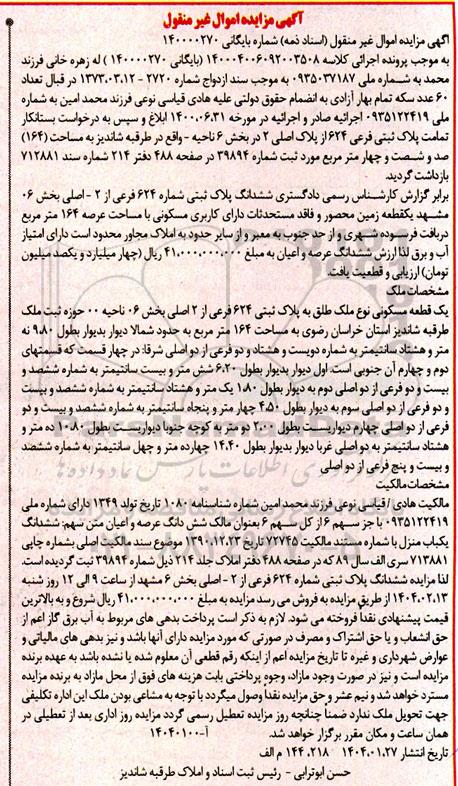 آگهی مزایده اموال غیر منقول
آگهی مزایده اموال غیر منقول (اسناد ذمه) شماره بایگانی ۱۴۰۰۰۰۲۷۰
به موجب پرونده اجرائی کلاسه ۱۴۰۰۰۴۰۰۶۰۹۲۰۰۳۵۰۸ (بایگانی ۱۴۰۰۰۰۲۷۰ ) له زهره خانی فرزند
محمد به شماره ملی ۰۹۳۵۰۳۷۱۸۷ به موجب سند ازدواج شماره ۲۷۲۰ - ۱۳۷۳.۰۳.۱۲ در قبال تعداد
۶۰ عدد سکه تمام بهار آزادی به انضمام حقوق دولتی علیه هادی قیاسی نوعی فرزند محمد امین به شماره
ملی ۰۹۳۵۱۲۲۴۱۹ اجرائیه صادر و اجرائیه در مورخه ۱۴۰۰.۰۶.۳۱ ابلاغ و سپس به درخواست بستانکار
تمامت پلاک ثبتی فرعی ۶۲۴ از پلاک اصلی ۲ در بخش ۶ ناحیه - واقع در طرقبه شاندیز به مساحت (۱۶۴)
صد و شصت و چهار متر مربع مورد ثبت شماره ۳۹۸۹۴ در صفحه ۴۸۸ دفتر ۲۱۴ شماره سند ۷۱۲۸۸۱
بازداشت گردید.
برابر گزارش کارشناس رسمی دادگستری ششدانگ پلاک ثبتی شماره ۶۲۴ فرعی از ۲ - اصلی بخش ۰۶
مشهد یکقطعه زمین محصور و فاقد مستحدثات دارای کاربری مسکونی با مساحت عرصه ۱۶۴ متر مربع
دریافت فرسوده شهری و از حد جنوب به معبر و از سایر حدود به املاک مجاور محدود است دارای امتیاز
آب و برق لذا ارزش ششدانگ عرصه و اعیان به مبلغ ۴۱،۰۰۰،۰۰۰،۰۰۰ ریال (چهار میلیارد و یکصد میلیون
تومان) ارزیابی و قطعیت یافت.
مشخصات ملک
یک قطعه مسکونی نوع ملک طلق به پلاک ثبتی ۶۲۴ فرعی از ۲ اصلی بخش ۰۶ ناحیه ۰۰ حوزه ثبت ملک
طرقبه شاندیز استان خراسان رضوی به مساحت ۱۶۴ متر مربع به حدود شمالا دیوار بدیوار بطول ۹.۸۰ نه
متر و هشتاد سانتیمتر به شماره دویست و هشتاد و دو فرعی از دو اصلی شرقا: در چهار قسمت که قسمتهای
دوم و چهارم آن جنوبی است. اول دیوار بدیوار بطول ۶.۲۰ شش متر و بیست سانتیمتر به شماره ششصد و
بیست و دو فرعی از دو اصلی دوم به دیوار بطول ۱.۸۰ یک متر و هشتاد سانتیمتر به شماره ششصد و بیست
و دو فرعی از دو اصلی سوم به دیوار بطول ۴.۵۰ چهار متر و پنجاه سانتیمتر به شماره ششصد و بیست و دو
فرعی از دو اصلی چهارم دیواریست بطول ۲.۰۰ دو متر به کوچه جنوبا دیواریست بطول ۱۰.۸۰ ده متر و
هشتاد سانتیمتر به دو اصلی غربا دیوار بدیوار بطول ۱۴.۴۰ چهارده متر و چهل سانتیمتر به شماره ششصد
و بیست و پنج فرعی از دو اصلی
مشخصات مالکیت
مالکیت هادی / قیاسی نوعی فرزند محمد امین شماره شناسنامه ۱۰۸۰ تاریخ تولد ۱۳۴۹ دارای شماره ملی
۰۹۳۵۱۲۲۴۱۹ با جز سهم ۶ از کل سهم ۶ بعنوان مالک شش دانگ عرصه و اعیان متن سهم: ششدانگ
یکباب منزل با شماره مستند مالکیت ۷۲۷۴۵ تاریخ ۱۳۹۰.۱۲.۲۳ موضوع سند مالکیت اصلی بشماره چاپی
۷۱۳۸۸۱ سری الف سال ۸۹ که در صفحه ۴۸۸ دفتر املاک جلد ۲۱۴ ذیل شماره ۳۹۸۹۴ ثبت گردیده است.
لذا مزایده ششدانگ پلاک ثبتی شماره ۶۲۴ فرعی از ۲ - اصلی بخش ۶ مشهد از ساعت ۹ الی ۱۲ روز شنبه
۱۴۰۴.۰۲.۱۳ از طریق مزایده به فروش می رسد مزایده به مبلغ ۴۱،۰۰۰،۰۰۰،۰۰۰ ریال شروع و به بالاترین
قیمت پیشنهادی نقدا فروخته می شود. لازم به ذکر است پرداخت بدهی های مربوط به آب برق گاز اعم از
حق انشعاب و یا حق اشتراک و مصرف در صورتی که مورد مزایده دارای آنها باشد و نیز بدهی های مالیاتی و
عوارض شهرداری و غیره تا تاریخ مزایده اعم از اینکه رقم قطعی آن معلوم شده یا نشده باشد به عهده برنده
مزایده است و نیز در صورت وجود مازاد، وجوه پرداختی بابت هزینه های فوق از محل مازاد به برنده مزایده
مسترد خواهد شد و نیم عشر و حق مزایده نقدا وصول میگردد با توجه به مشاعی بودن ملک این اداره تکلیفی
جهت تحویل ملک ندارد ضمناً چنانچه روز مزایده تعطیل رسمی گردد مزایده روز اداری بعد از تعطیلی در
همان ساعت و مکان مقرر برگزار خواهد شد. آ-۱۴۰۴۰۱۰۰
تاریخ انتشار ۱۴۰۴.۰۱.۲۷ ۱۴۴،۲۱۸ م الف
حسن ابوترابی - رئیس ثبت اسناد و املاک طرقبه شاندیز